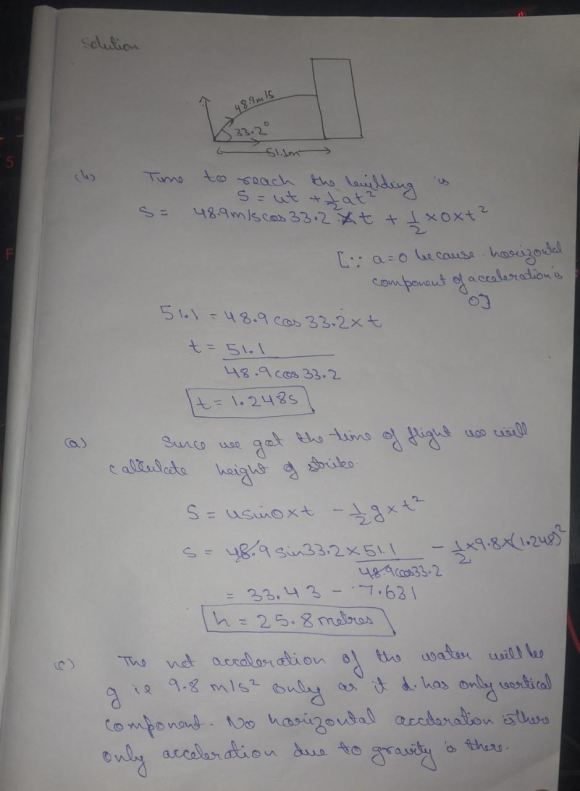 Solution
48.9m/s
33.2°
51.1m
(b) Time to reach the building is
S = ut + 1/2 at²
S = 48.9m/s cos 33.2 × t + 1/2 × 0 × t²
[∵ a=0 because horizontal
component of acceleration is
0]
51.1 = 48.9 cos 33.2 × t
t = 51.1
48.9 cos 33.2
t = 1.248s
(a) Since we got the time of flight we will
calculate height of strike
S = usinθ × t - 1/2 g × t²
S = 48.9 sin 33.2 × 51.1/48.9 cos 33.2 - 1/2 × 9.8 × (1.248)²
= 33.43 - 7.631
h = 25.8 metres
(c) The net acceleration of the water will be
g i.e 9.8 m/s² only as it has only vertical
component. No horizontal acceleration is there
only acceleration due to gravity is there.